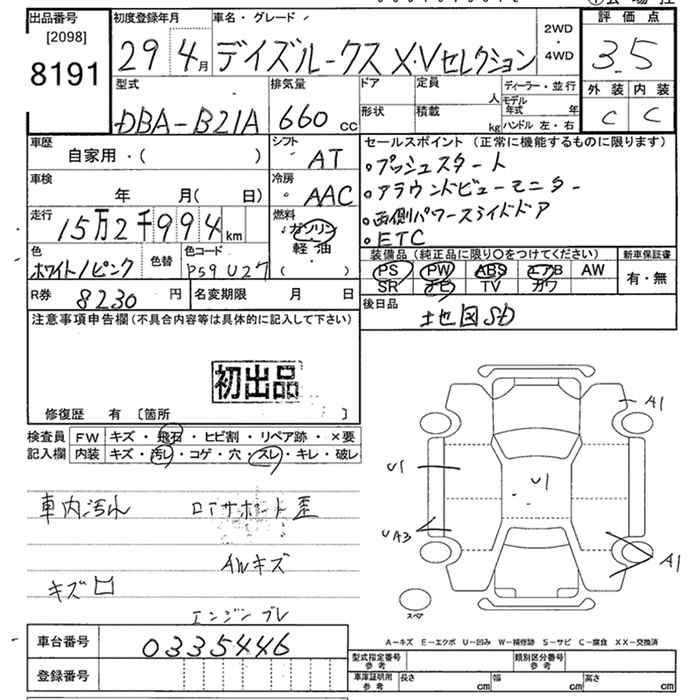 出品番号
[2098]
8191
初度登録年月
29 4月
車名・グレード
デイズルークス X・Vセレクション
2WD
・
4WD
評価点
3.5
型式
DBA-B21A
排気量
660 cc
ドア
形状
定員 人
積載 kg
ディーラー・並行
モデル年式 年
ハンドル 左・右
外装 内装
C C
車歴
自家用・( )
シフト
AT
車検
年 月(日)
冷房
AAC
走行
15万2千994km
燃料
ガソリン
軽油
( )
色
ホワイト/ピンク
色替
色コード
P59 U27
R券 8230 円
名変期限 月 日
セールスポイント (正常に機能するものに限ります)
・プッシュスタート
・アラウンドビューモニター
・両側パワースライドドア
・ETC
装備品(純正品に限り○をつけてください)
PS PW ABS エアB AW
SR ナビ TV カワ
新車保証書
有・無
後日品
地図SD
注意事項申告欄(不具合内容等は具体的に記入して下さい)
初出品
修復歴 有 [箇所 ]
検査員記入欄
FW キズ・飛石・ヒビ割・リペア跡・×要
内装 キズ・汚レ・コゲ・穴・スレ・キレ・破レ
車内汚れ
ロアサポート歪
AWキズ
キズ凹
エンジンブレ
A1
U1
U1
UA3
A1
スペア
A-キズ E-エクボ U-凹み W-補修跡 S-サビ C-腐食 XX-交換済
車台番号 0335446
登録番号
型式指定番号 参考
類別区分番号 参考
車庫証明用 参考
長さ cm
幅 cm
高さ cm